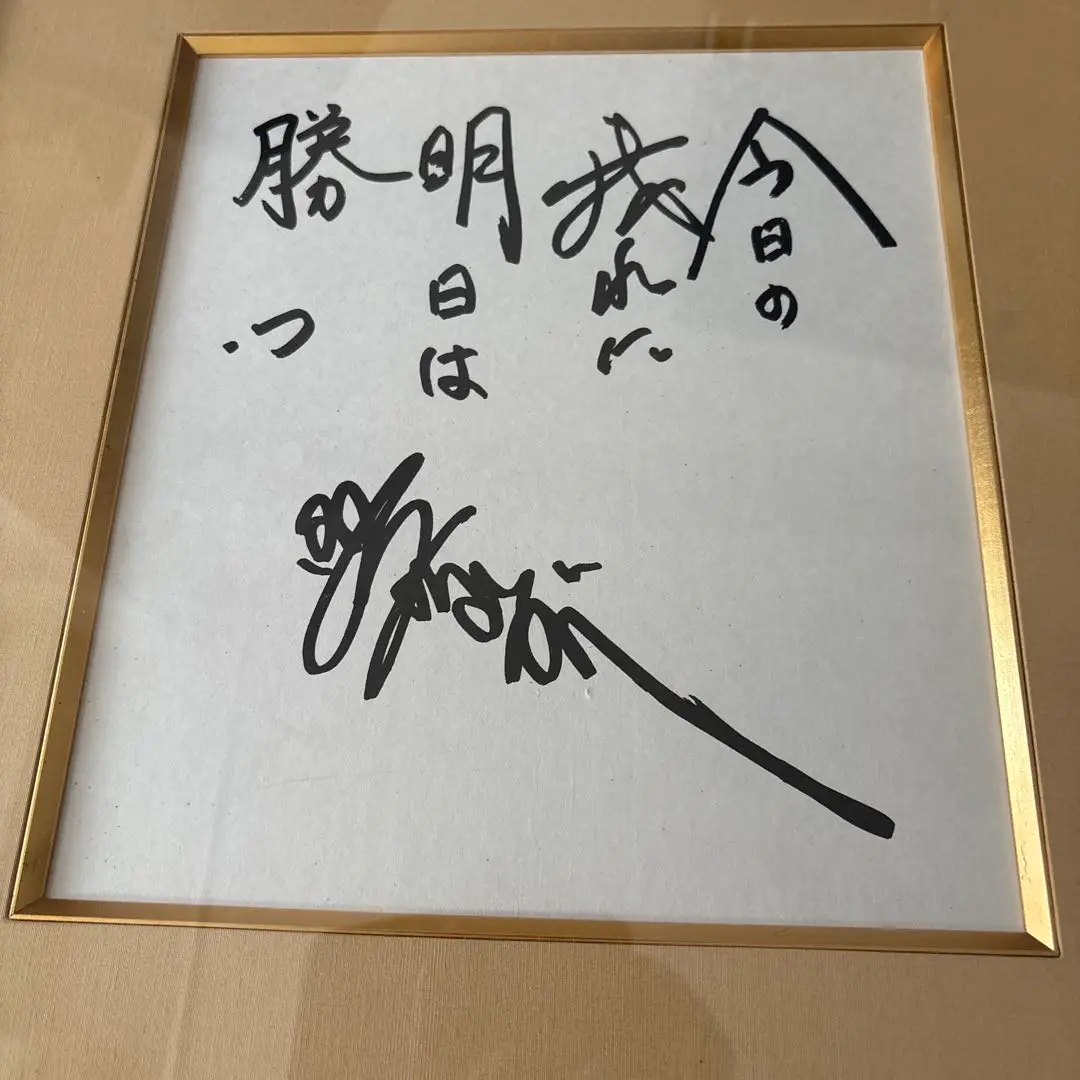 今日の
我れに
明日は
勝つ